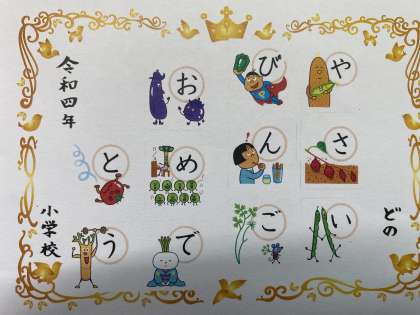 どの
やさい
びんご
おめで
とう
令和四年
小学校